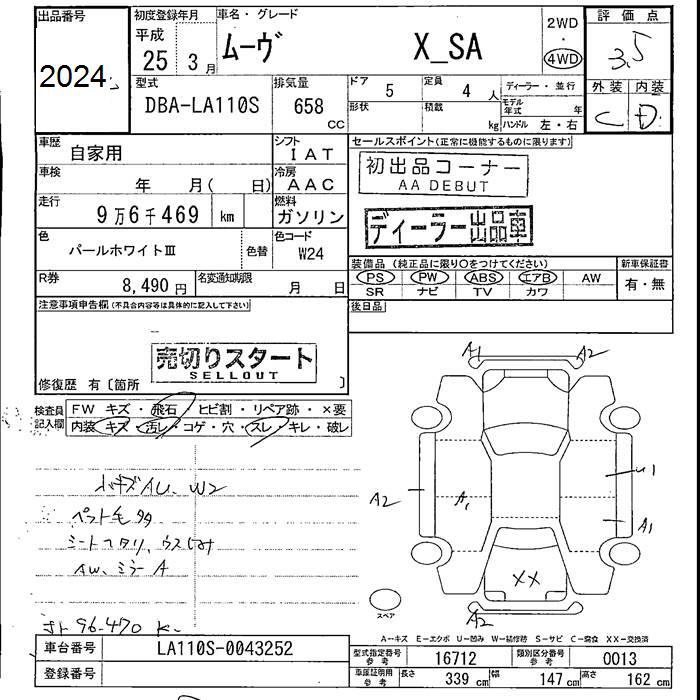 出品番号
2024
初度登録年月
平成
25年 3月
車名・グレード
ムーヴ X_SA
2WD
・
4WD
評価点
3.5
型式
DBA-LA110S
排気量
658
CC
ドア
5
定員
4 人
形状
積載
kg
ディーラー・並行
モデル年式 年
ハンドル 左・右
外装 内装
C D
車歴
自家用
シフト
IAT
車検
年 月( 日)
冷房
AAC
走行
9万6千469 km
燃料
ガソリン
色
パールホワイトⅢ
色替
色コード
W24
R券
8,490 円
名変通知期限
月 日
セールスポイント(正常に機能するものに限ります)
初出品コーナー
AA DEBUT
ディーラー出品車
装備品(純正品に限り○をつけてください)
新車保証書
PS PW ABS エアB AW
SR ナビ TV カワ
有・無
後日品
注意事項申告欄(不具合内容等は具体的に記入して下さい)
売切りスタート
SELLOUT
修復歴 有〔箇所 〕
検査員記入欄
FW キズ・飛石・ヒビ割・リペア跡・×要
内装 キズ・汚レ・コゲ・穴・スレ・キレ・破レ
A1 A2
U1
A2 A1 A1
XX
A2
スペア
AU、W2
ペット毛
AW、ミラーA
96-470 K
A-キズ E-エクボ U-凹み W-補修跡 S-サビ C-腐食 XX-交換済
車台番号
LA110S-0043252
登録番号
型式指定番号
参考
16712
類別区分番号
参考
0013
車庫証明用
参考
長さ 339 cm 幅 147 cm 高さ 162 cm